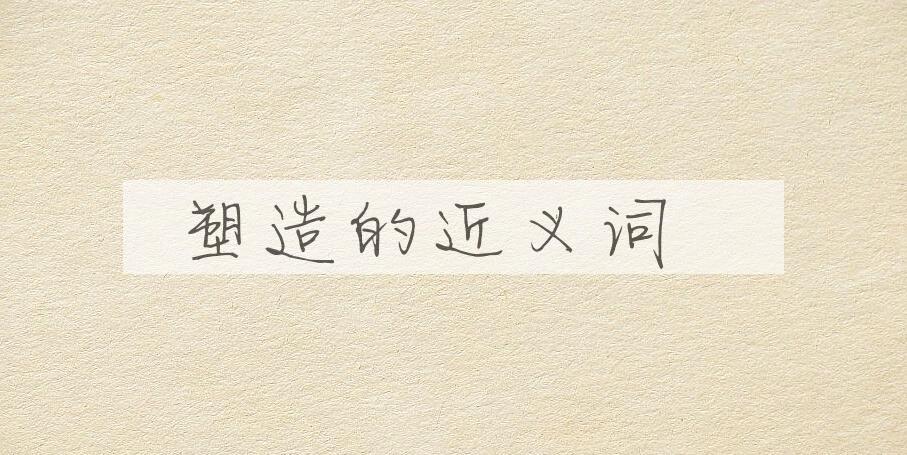 塑造的近义词